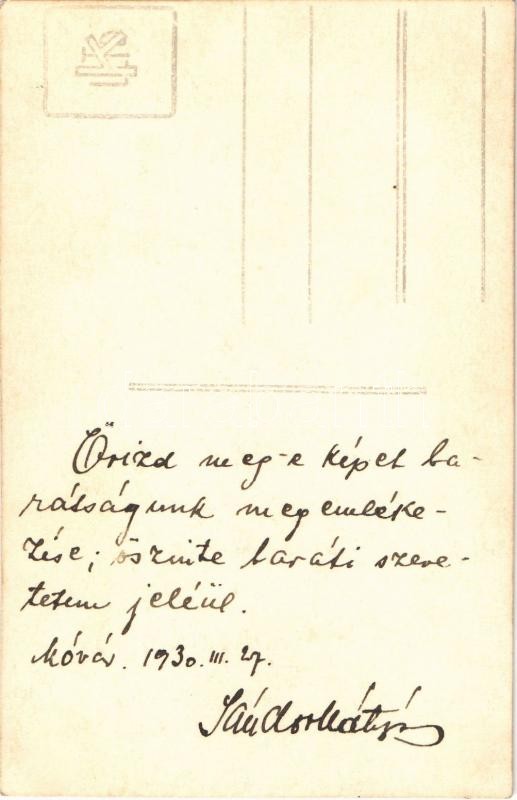 Őrizd meg-e képet ba-
rátságunk megemléke-
zése; őszinte baráti szere-
tetem jeléül.
Móvár. 1930. III. 27.
Sándor Mátyás